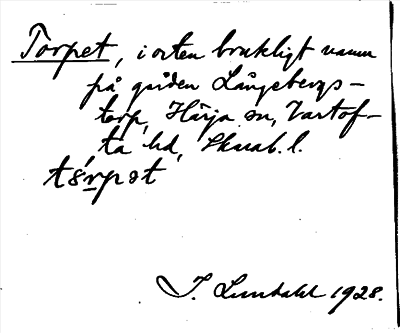 Torpet, i orten brukligt namn
på gården Långebergs-
torp, Härja sn, Vartof-
ta hd, Skarab. l.
tɷ́rpət
J. Lundahl 1928.